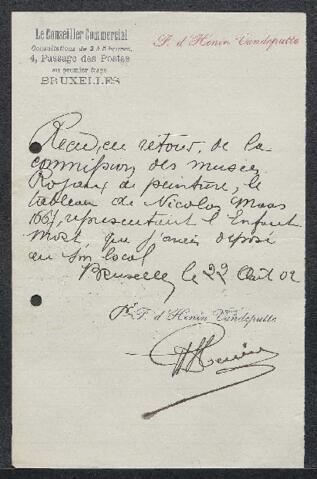 Le Conseiller Commercial
Consultations de 2 à 5 heures
4, Passage des Postes
au premier étage
BRUXELLES
F. d'Henin Vandeputte
Recu, en retour, de la
commission des musées
Royaux de peinture, le
tableau de Nicolas Maas
1667, representant l'Enfant
mort, que j'avais déposé
au local
Bruxelles, le 22 Aout 02
Pr F. d'Henin Vandeputte